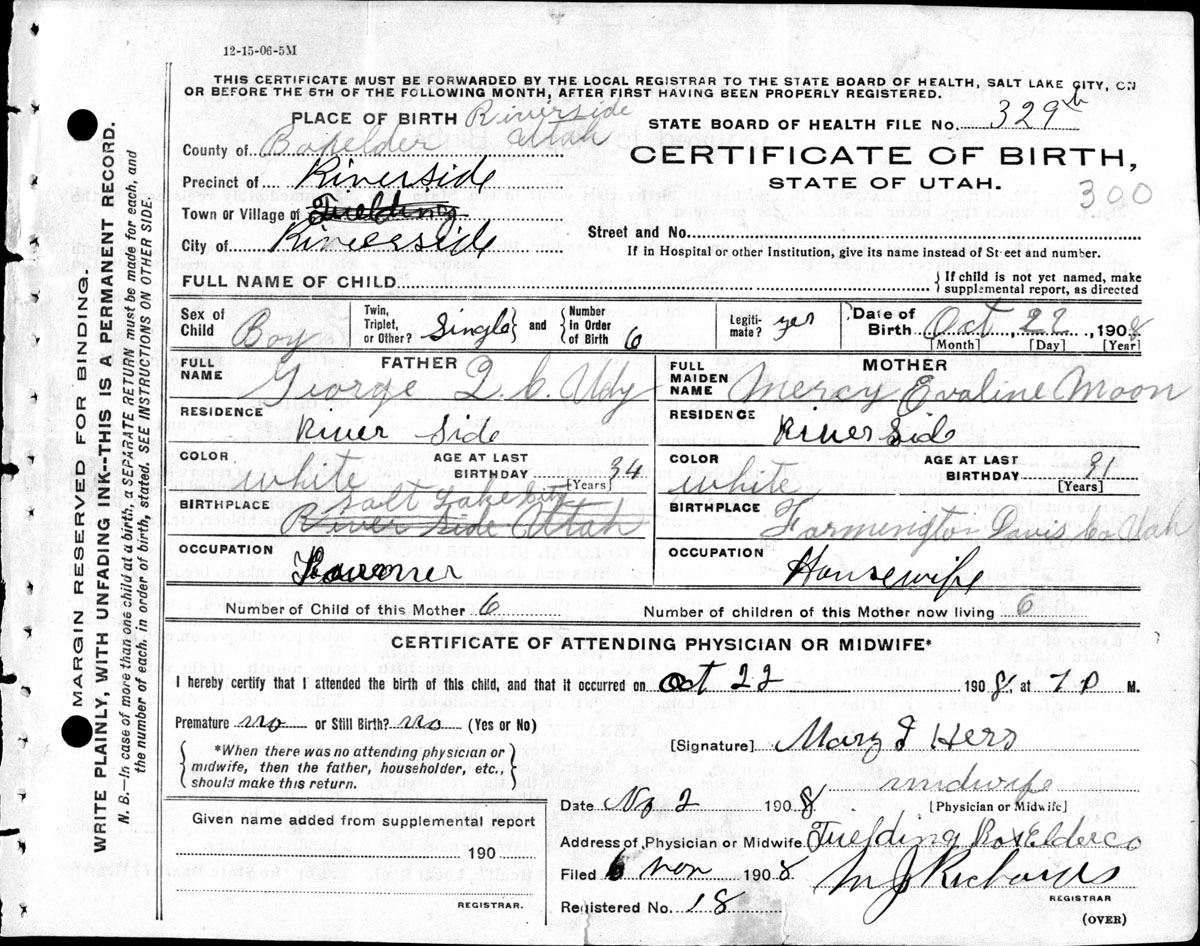 12-15-06-5M
THIS CERTIFICATE MUST BE FORWARDED BY THE LOCAL REGISTRAR TO THE STATE BOARD OF HEALTH, SALT LAKE CITY, ON
OR BEFORE THE 5TH OF THE FOLLOWING MONTH, AFTER FIRST HAVING BEEN PROPERLY REGISTERED.
PLACE OF BIRTH Riverside
Utah
STATE BOARD OF HEALTH FILE No. 329
County of Boxelder
CERTIFICATE OF BIRTH,
STATE OF UTAH.
300
Precinct of Riverside
Town or Village of Fielding
City of Riverside
Street and No.
If in Hospital or other Institution, give its name instead of St eet and number.
FULL NAME OF CHILD
If child is not yet named, make
supplemental report, as directed
Sex of Child Boy
Twin, Triplet, or Other? Single and Number in Order of Birth 6
Legiti-mate? yes
Date of Birth Oct 22 1908
[Month] [Day] [Year]
FATHER
FULL NAME George Q. C. Udy
MOTHER
FULL MAIDEN NAME Mercy Evaline Moon
RESIDENCE River Side
RESIDENCE River Side
COLOR white AGE AT LAST BIRTHDAY 34 [Years]
COLOR white AGE AT LAST BIRTHDAY 31 [Years]
BIRTHPLACE Salt Lake City
River Side Utah
BIRTHPLACE Farmington Davis Co Utah
OCCUPATION
OCCUPATION Housewife
Number of Child of this Mother 6 Number of children of this Mother now living 6
CERTIFICATE OF ATTENDING PHYSICIAN OR MIDWIFE*
I hereby certify that I attended the birth of this child, and that it occurred on Oct 22 1908, at 7 P M.
Premature no or Still Birth? no (Yes or No)
*When there was no attending physician or
midwife, then the father, householder, etc.,
should make this return.
[Signature] Mary
midwife
[Physician or Midwife]
Given name added from supplemental report
190
REGISTRAR.
Date 2 1908
Address of Physician or Midwife Fielding BoxElder Co
Filed 6 Nov 1908
M J Richards
REGISTRAR
Registered No. 18
(OVER)
MARGIN RESERVED FOR BINDING.
WRITE PLAINLY, WITH UNFADING INK--THIS IS A PERMANENT RECORD.
N. B.—In case of more than one child at a birth, a SEPARATE RETURN must be made for each, and
the number of each, in order of birth, stated. SEE INSTRUCTIONS ON OTHER SIDE.